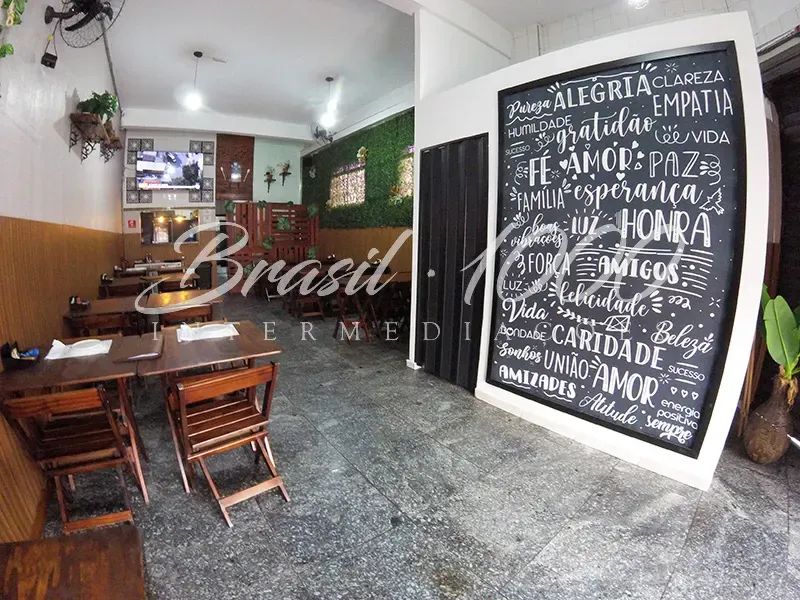 Pureza ALEGRIA CLAREZA
HUMILDADE gratidão EMPATIA
SUCESSO é VIDA
FÉ AMOR PAZ
FAMÍLIA esperança
boas vibrações LUZ HONRA
LUZ FORÇA AMIGOS
Vida felicidade
BONDADE CARIDADE Beleza
Sonhos UNIÃO AMOR SUCESSO
AMIZADES Atitude energia positiva
sempre
Brasil · 1000
INTERMEDIAÇÕES